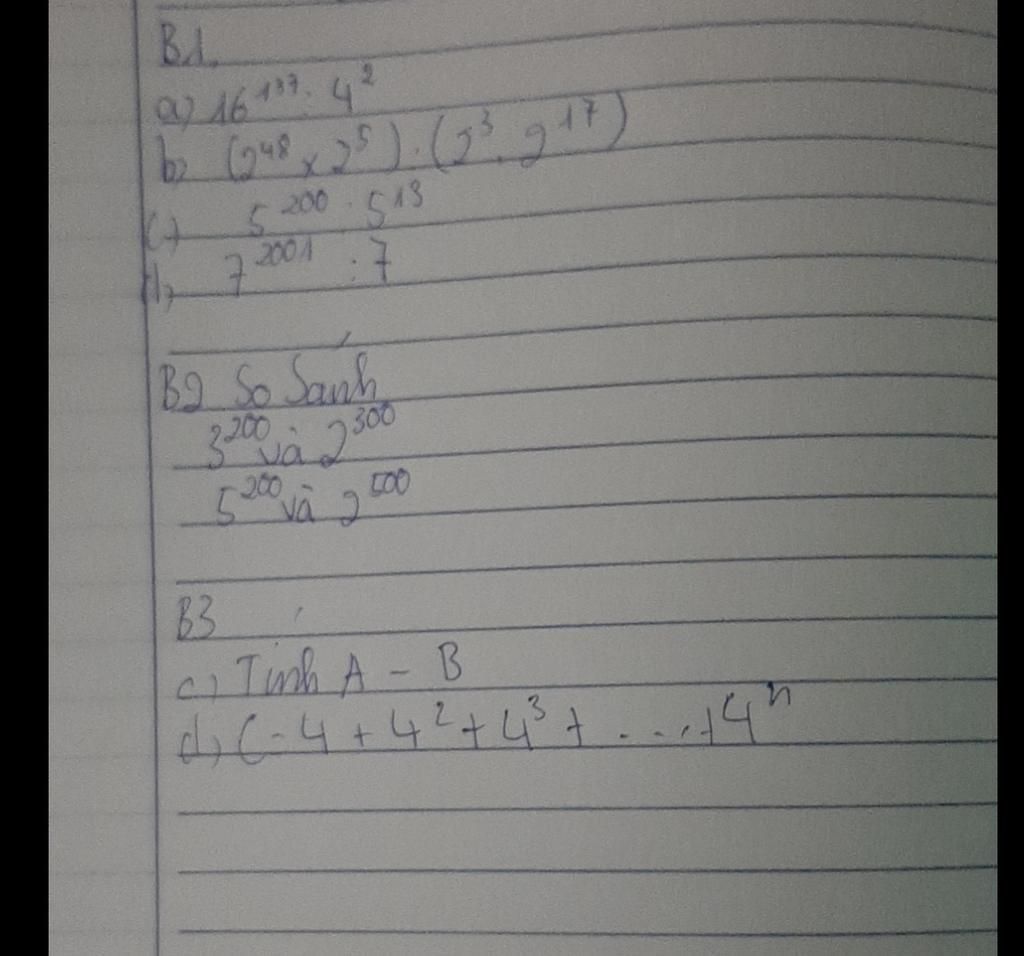 B1,
a) 16¹³⁷ : 4²
b, (2⁴⁸ × 2⁵) . (2³ . 2¹⁷)
c, 5²⁰⁰ . 5¹³
d, 7²⁰⁰¹ : 7
B2 So Sánh
3²⁰⁰ và 2³⁰⁰
5²⁰⁰ và 2⁵⁰⁰
B3
c) Tính A - B
d, C = 4 + 4² + 4³ + ... + 4ⁿ